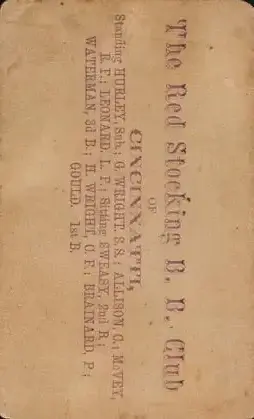 The Red Stocking B. B. Club
OF
CINCINNATTI,
Standing HURLEY, Sub.; G. WRIGHT, S. S.; ALLISON, C.; McVEY,
R. F.; LEONARD, L. F.; Sitting SWEASY, 2nd B.;
WATERMAN, 3d B.; H. WRIGHT, C. F.; BRAINARD, P.;
GOULD. 1st B.